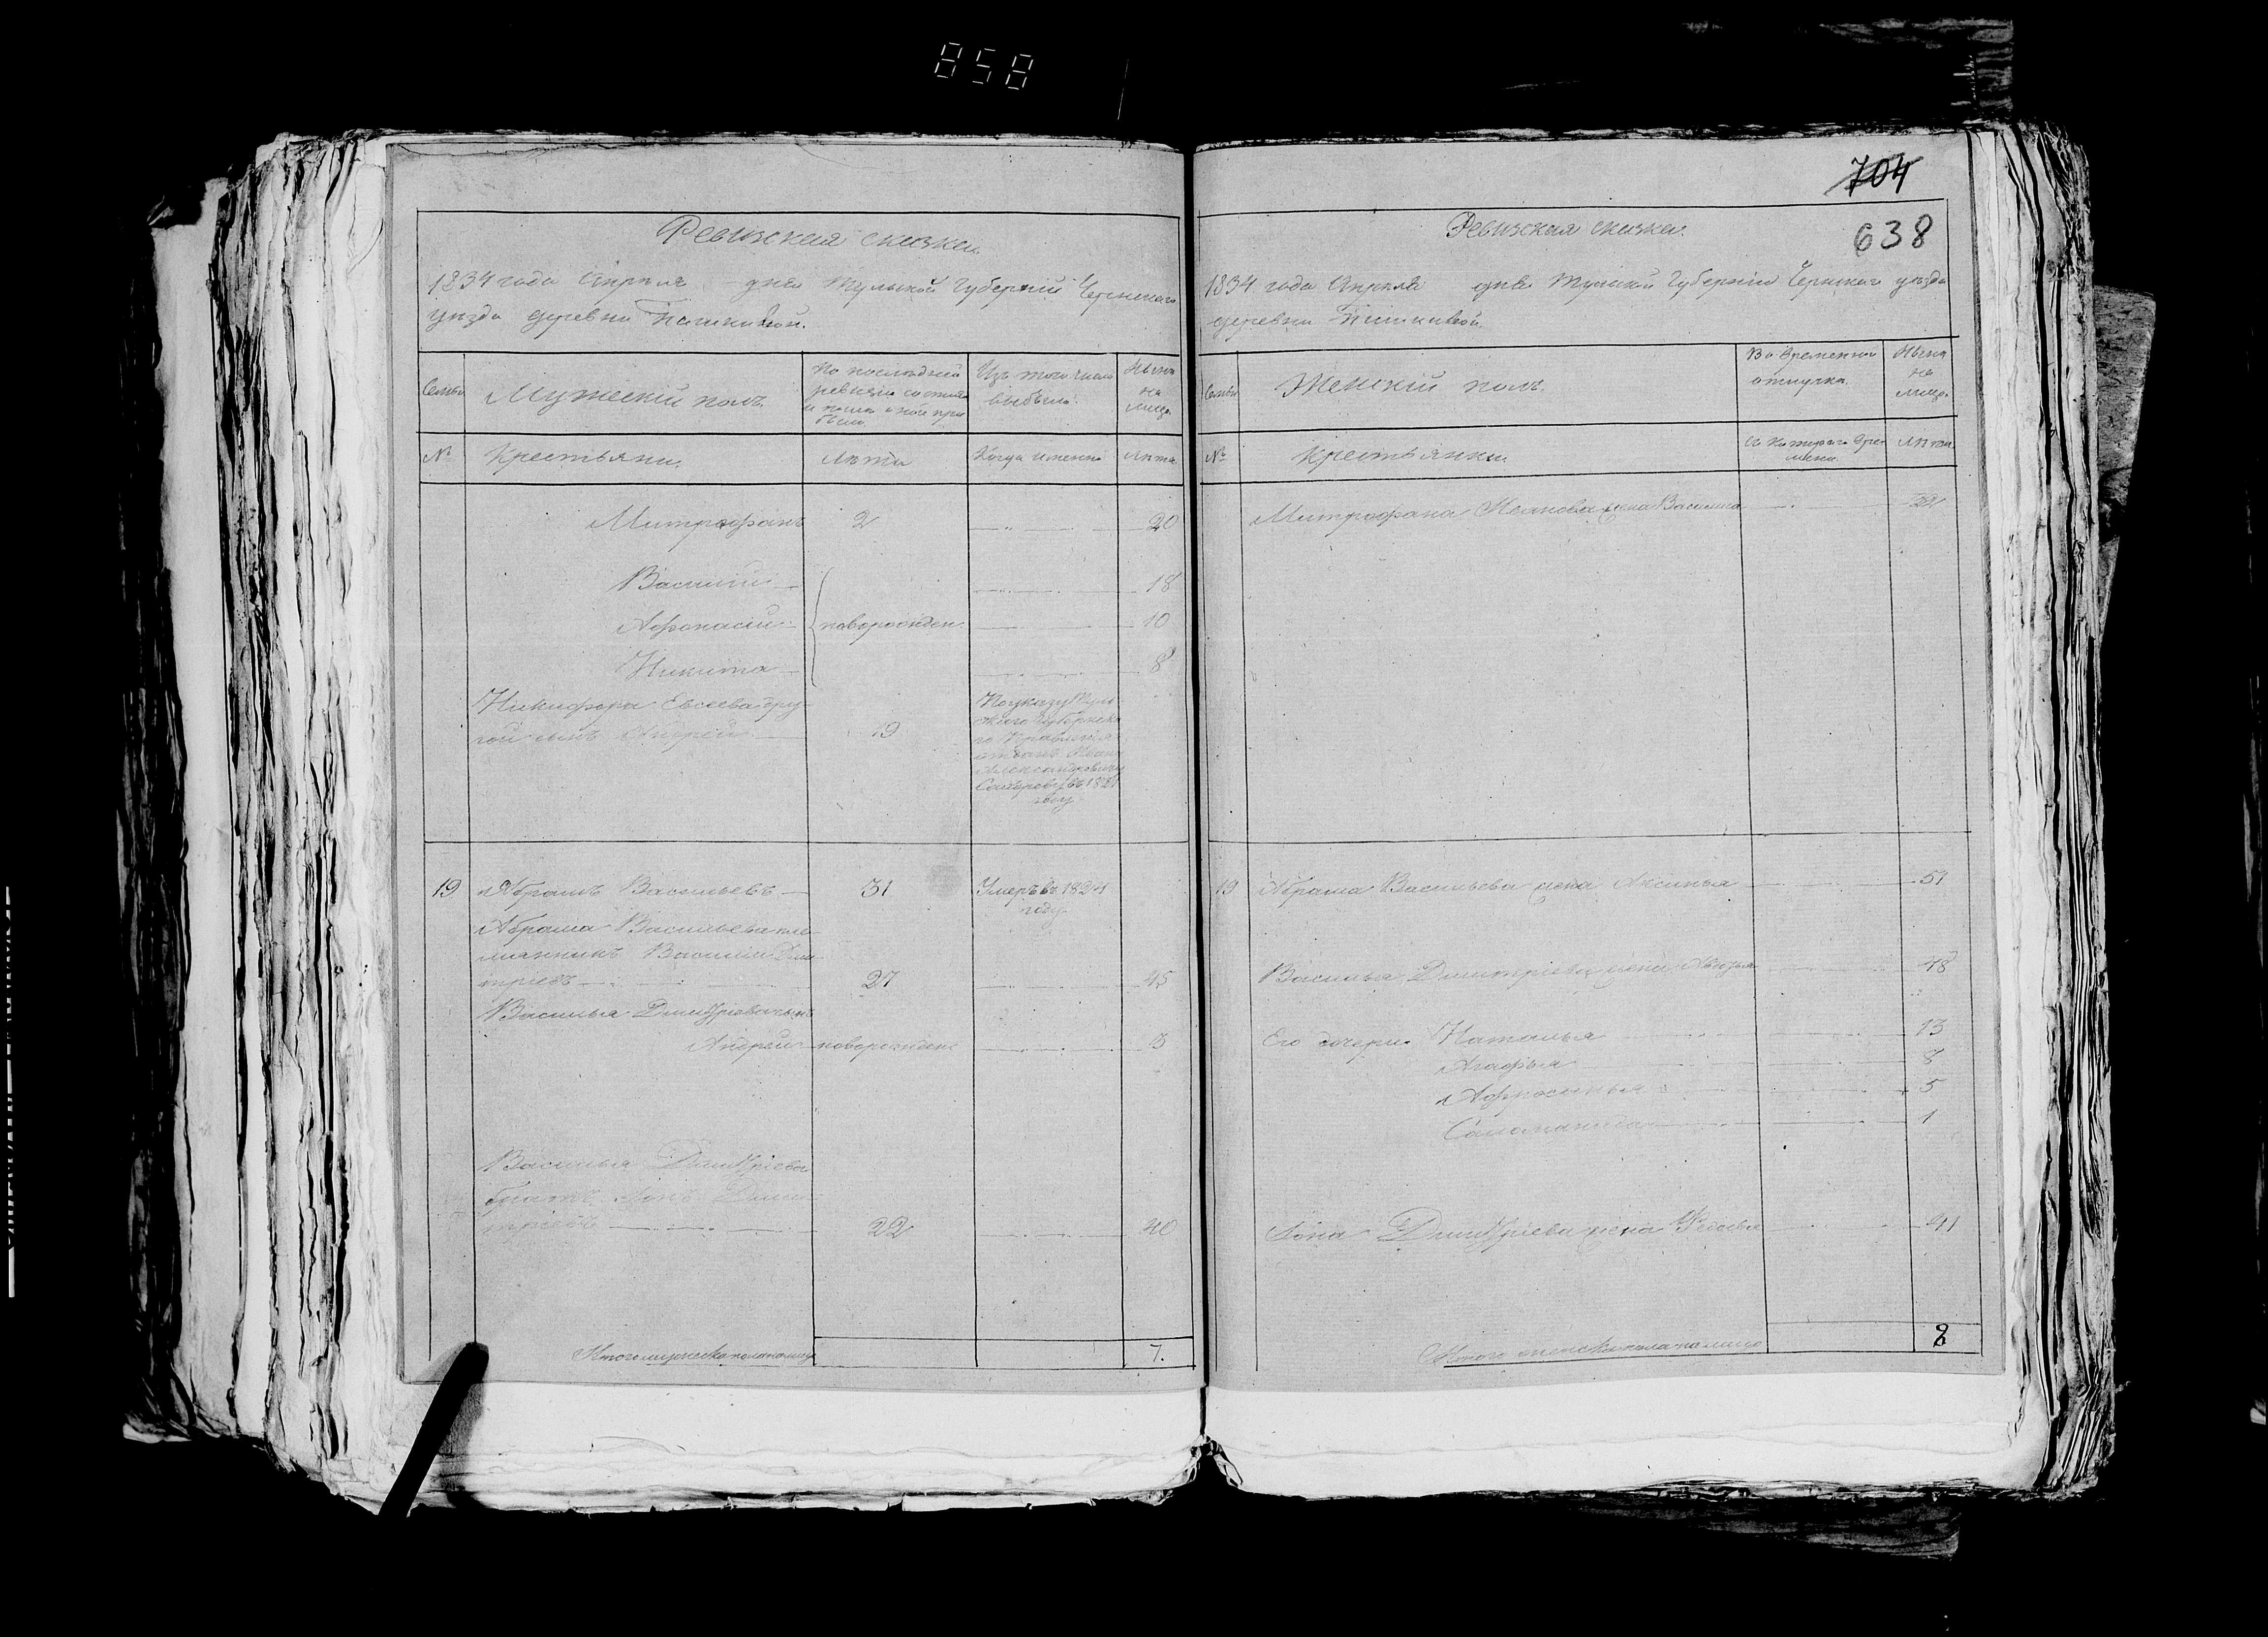 858
Ревизская сказка.
1834 года Апреля - дня Тульской Губернии Чернскаго
уезда деревни
Семьи
Мужеский полъ.
По последней
ревизии состояло
и после оной при
было.
Изъ того числа
выбыло.
Ныне
на
лицо.
№
Крестьяни.
Лета
Когда именно
Лета
Митрофанъ 2 20
Василий 18
Афонасий новорожден. 10
Никита 8
Никифора Евсеева дру
гой сынъ Андрей 19
По указу Туль
скаго Губернска
го Правления
отданъ Ивану
Александровичу
году
19 Абрамъ Васильевъ 51 Умеръ въ 1824
году
Абрама Васильева пле
мянникъ Василий Дми
триевъ 27 45
Василья Дмитриева сынъ
Андрей новорожден. 3
Василья Дмитриева
братъ Дми
триевъ 22 40
Итого мужеска пола на лицо 7.
704
638
Ревизская сказка.
1834 года Апреля дня Тульской Губернии Чернскаго уезда
деревни
Семьи
Женский полъ.
Во временной
отлучке.
Ныне
на
лицо.
№
Крестьянки.
Съ котораго вре
мени.
Лета
Митрофана Иванова жена Василиса
19 Абрама Васильева жена Аксинья 51
Василья Дмитриева жена 48
Его дочери Наталья 13
Агафья 8
Афросинья 5
Саломанида 1
Дмитриева жена 41
Итого женска пола на лицо 8